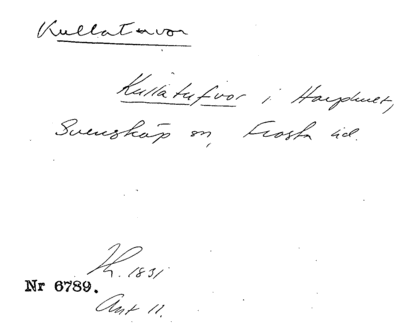 Kullatuvor
Kullatufvor i Harphult,
Svensköp sn, Frosta hd.
Th. 1831
Nr 6789.
Ant 11.